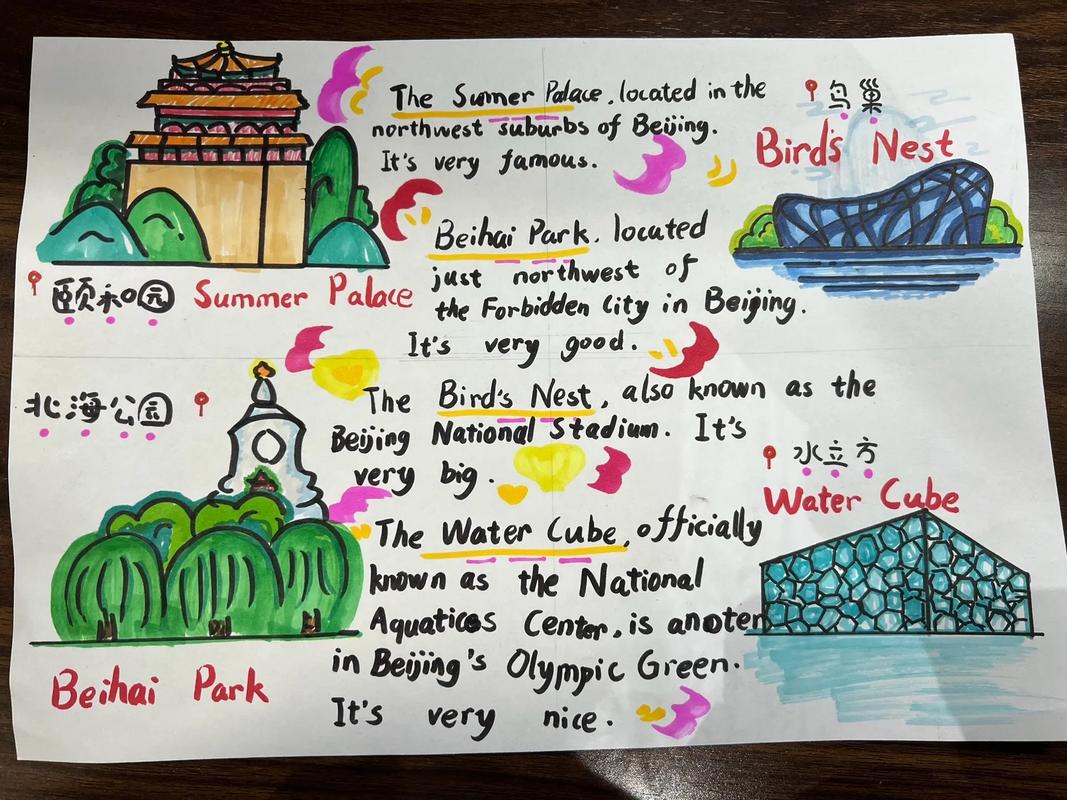 The Sumer Palace, located in the
northwest suburbs of Beijing.
It's very famous.
鸟巢
Bird's Nest
颐和园 Summer Palace
Beihai Park, located
just northwest of
the Forbidden City in Beijing.
It's very good.
北海公园
The Bird's Nest, also known as the
Beijing National Stadium. It's
very big.
水立方
Water Cube
The Water Cube, officially
known as the National
Aquaticos Center, is anoter
in Beijing's Olympic Green.
It's very nice.
Beihai Park